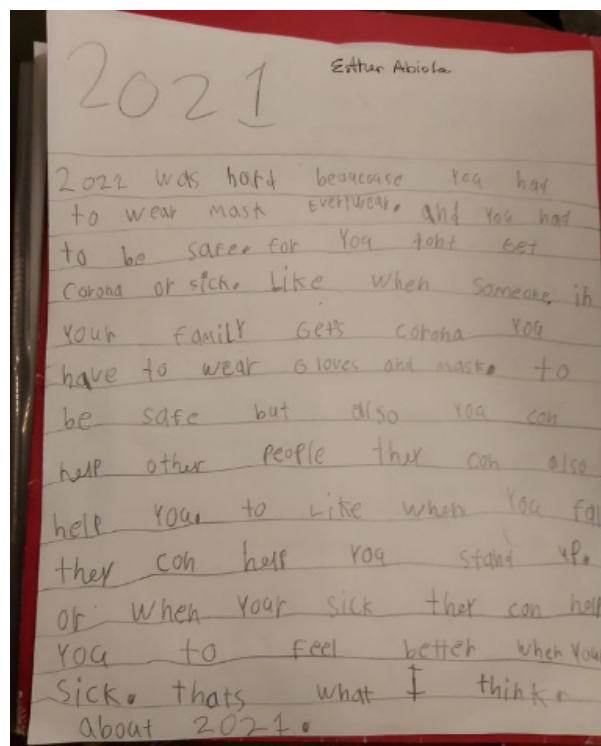 2021
Esther Abiola
2021 was hard beaucause you had
to wear mask everywear. and you had
to be safe. for you doht get
corona or sick. Like when someone, in
your family Gets corona you
have to wear Gloves and mask. to
be safe but also you can
help other people they con also
help you. to Like when you fal
they con help you stand up.
or when your sick they can help
you to feel better when your
sick. thats what I think.
about 2021.